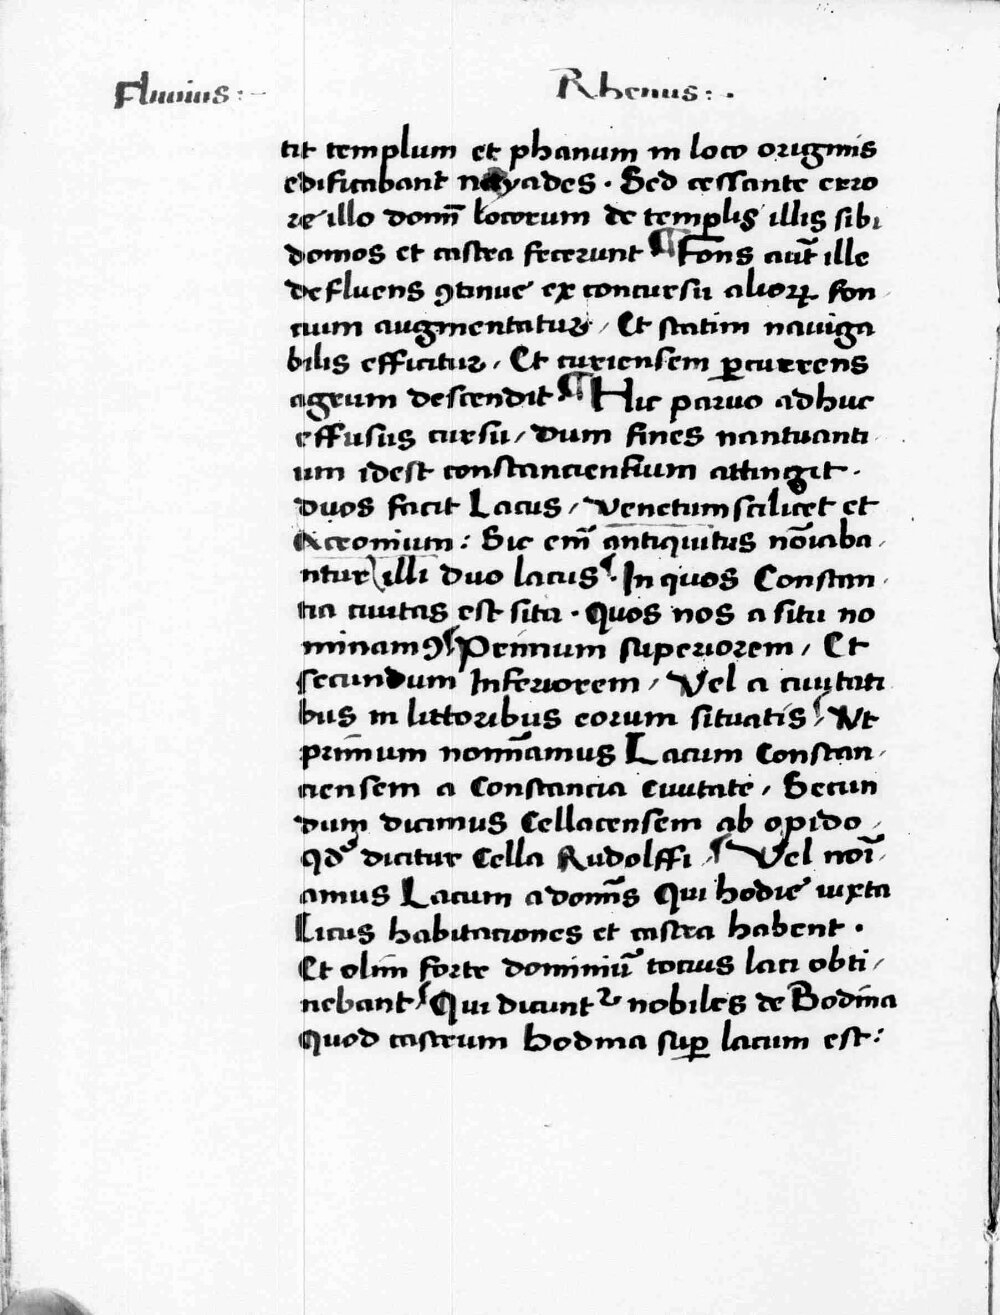 Fluuius :- Rhenus : .
tit templum et phanum in loco originis
edificabant nayades . Sed cessante erro
re illo domī locorum de templis illis sibi
domos et castra fecerunt ¶ Fons aut̄ ille
defluens ꝯtinue ex concursu alioꝝ fon
cium augmentatur / Et statim nauiga
bilis efficitur / Et curiensem ꝑcurrens
agrum descendit ¶ Hic paruo adhuc
effusus cursu / dum fines nantuanti
um idest constancientium attingit .
duos facit Lacus / Venetum scilicet et
Acronium : Sic em̄ antiquitus nōiaba /
ntur illi duo lacus . In quos Constan /
tia ciuitas est sita . Quos nos a situ no
minamꝰ Primum superiorem / Et
secundum Inferiorem / Vel a ciuitati
bus in littoribus eorum situatis / Ut
primum nomīamus Lacum Constan /
ciensem a Constancia Ciuitate / Secun
dum dicimus Cellacensem ab opido /
qd dicitur Cella Rudolffi / Vel noī /
amus Lacum a domīs Qui hodie iuxta
Litus habitaciones et castra habent .
Et olim forte dominiū tocius laci obti /
nebant / Qui dicunt᷑ nobiles de Bodma
Quod castrum bodma suꝑ lacum est :